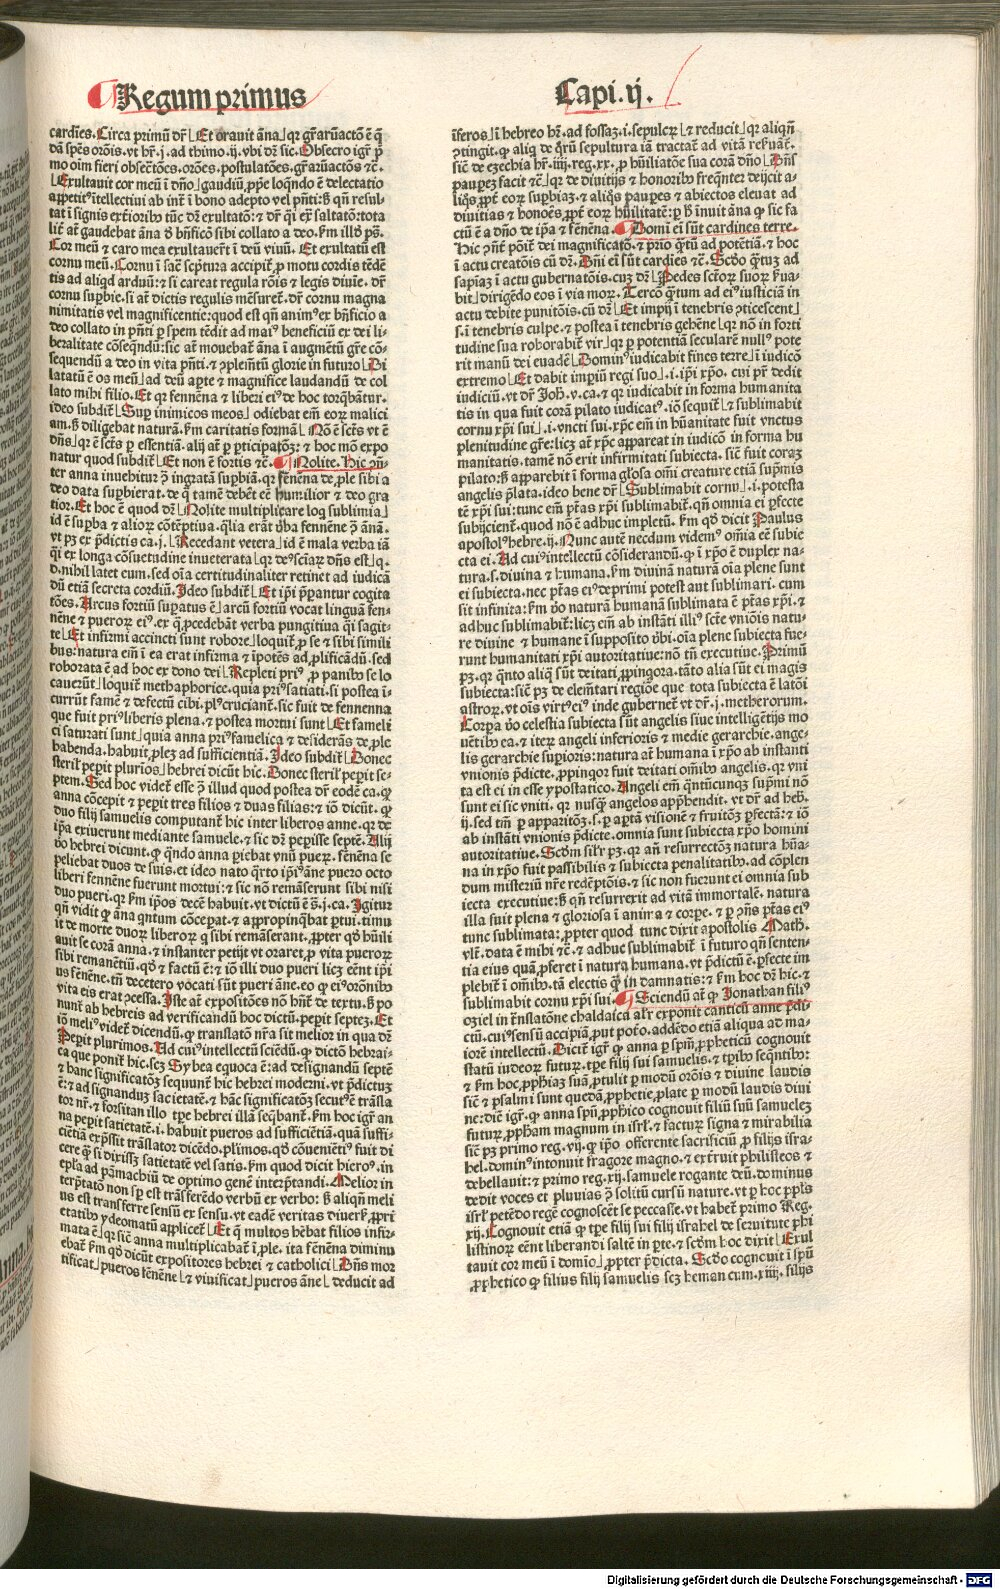 Regum primus
Capi. ij.
cardies. Circa primū dr̄ Et orauit āna qr gr̄arū actō ē q̄
dā spēs orōis. vt hr̄. j. ad thimo. ij. vbi dr̄ sic. Obsecro igr̄ p̄
mo oīm fieri obsecrōes. orōes. postulatōes. gr̄arū actōes ⁊c̄.
Exultauit cor meū ī dn̄o gaudiū, ppe loqn̄do ē delectatio
tat ī signis exteriorib tūc dr̄ exultatō: ⁊ dr̄ qi ex saltatō: tota
lic̄ at̄ gaudebat āna d̄ bn̄ficō sibi collato a deo. km̄ illd̄ ps̄.
Cor meū ⁊ caro mea exultauerт̄ ī deū viuū. Et exultatū est
cornu meū. Cornu ī sac̄ scptura accipit̄ p motu cordis tēdē
tis ad aliqd̄ arduū: ⁊ si careat regula rōis ⁊ legis diuie. dr̄
cornu supbie. si at̄ dictis regulis mēsuret̄. dr̄ cornu magna
nimitatis vel magnificentie: quod est qn̄ animꝰ ex bn̄ficio a
deo collato in pn̄ti p spem tēdit ad maiꝰ beneficiū ex dei li-
beralitate cōseqn̄dū: sic at̄ mouebat̄ āna ī augmētū gr̄e cō-
sequendū a deo in vita pn̄ti. ⁊ ꝯplemētū glorie in futuro Di
latatū ē os meū ad deū apte ⁊ magnifice laudandū de col
lato mihi filio. Et qr fennēna ⁊ liberi eiꝰ de hoc torqbātur.
ideo subdit̄ Sup inimicos meos odiebat em̄ eorꝝ malici
am. ß diligebat naturā. km̄ caritatis formā Nō ē sc̄ts vt ē
dn̄s qr ē sc̄ts p essentiā. alij at̄ p pticipatōꝫ: ⁊ hoc mō expo
natur quod subdit̄ Et non ē fortis ⁊c̄. Nolite. Hic ꝯn̄-
ter anna inuehitur ꝯ ingratā supbiā. qr fenēna de ple sibi a
deo data supbierat. de q̄ tamē debēt eē humilior ⁊ deo gra
tior. Et hoc ē quod dr̄ Nolite multiplicare loq sublimia
id ē supba ⁊ aliorꝝ cōtēptiua. qlia erāt v̄ba fennēne ꝯ ānā.
vt pꝫ ex p̄dictis ca. j. Recedant vetera id ē mala verba iā
qi ex longa cōsuetudine inueterata qr deꝰ sciaꝝ dn̄s est q.
d. nihil latet eum. sed oīa certitudinaliter retinet ad iudicā
dū etiā secreta cordiū. Ideo subdit̄ Et ip̄i p̄pantur cogita
tōes. Arcus fortiū supatus ē arcū fortiū vocat linguā fen-
nēne ⁊ puerorꝝ eiꝰ. ex q̄ pcedebāt verba pungitiua qi sagit-
te Et infirmi accincti sunt robore loquit̄ p se ⁊ sibi simili
bus: natura em̄ ī ea erat infirma ⁊ īpotēs ad plificādū. sed
roborata ē ad hoc ex dono dei Repleti priꝰ p panib se lo
cauerūt loquit̄ methaphorice. quia priꝰ satiati. si postea ī-
currūt famē ⁊ defectū cibi. plꝰ crucianť. sic fuit de fennenna
que fuit priꝰ liberis plena. ⁊ postea mortui sunt Et fameli
ci saturati sunt quia anna priꝰ famelica ⁊ desiderās de ple
habenda. habuit plez ad sufficientiā. Ideo subdit̄ Donec
steril pepit plurīos hebrei dicūt hic. Donec steril pepit se-
ptem. Sed hoc videt̄ esse ꝯ illud quod postea dr̄ eodē ca. ꝙ
anna cōcepit ⁊ pepit tres filios ⁊ duas filias: ⁊ iō dicūt. ꝙ
duo filij samuelis computant̄ hic inter liberos anne. qr de
ip̄a exiuerunt mediante samuele. ⁊ sic dr̄ peperisse septē. Alij
v̄o hebrei dicunt. ꝙ qn̄do anna pariebat vnū pueꝝ. fenēna se
peliebat duos de suis. et ideo nato qrto ip̄iꝰ āne puero octo
liberi fennēne fuerunt mortui: ⁊ sic nō remāserunt sibi nisi
duo pueri. qr km̄ ip̄os decē habuit. vt dictū ē s̄. j. ca. Igitur
qn̄ vidit ꝙ āna qntum cōceperat. ⁊ appropinqbat ptui. timu
it de morte duorꝝ liberorꝝ q sibi remāserant. ppter qd̄ hūili
auit se corā anna. ⁊ instanter petijt vt oraret. p vita puerorꝝ
sibi remanētiū. qd̄ ⁊ factū ē: ⁊ iō illi duo pueri licꝫ eēnt ip̄i
us fenēne. tn̄ decetero vocati sūt pueri āne. eo ꝙ eiꝰ orōnib
vita eis erat ꝯcessa. Iste at̄ expositōes nō hn̄t de textu. ß po
nunt ab hebreis ad verificandū hoc dictū. pepit septez. Et
iō meliꝰ videt̄ dicendū. ꝙ translatō nr̄a sit melior in qua dr̄
Pepit plurimos. Ad cuiꝰ intellectū sciēdū. ꝙ dictō hebrai-
ca que ponit̄ hic. scꝫ Sybea equoca ē: ad designandū septē
⁊ hanc significatōꝫ sequunt̄ hic hebrei moderni. vt p̄dictuꝫ
ē: ⁊ ad signanduꝫ sacietatē. ⁊ hāc significatōꝫ secutꝰ ē trāsla
tor nr̄. ⁊ forsitan illo tpe hebrei illā seqbant̄. km̄ hoc igr̄ an
na pepit satietatē. i. habuit pueros ad sufficiētiā. quā suffi-
ciētiā exp̄ssit trāslator dicēdo. plimos. qd̄ cōueniētiꝰ fuit di
cere q̄ si dixissꝫ satietatē vel satis. km̄ quod dicit hieroꝰ. in
epla ad pāmachiū de optimo gene interp̄tandi. Melior in
terp̄tatō non sp est trāsferēdo verbū ex verbo: ß aliqn̄ meli
us est transferre sensū ex sensu. vt eadē veritas diuersꝭ ppri
etatib ydeomatū applicet̄ Et q̄ multos hēbat filios infir-
mata ē qr sic̄ anna multiplicabat̄ ī ple. ita fenēna diminu
ebat̄ km̄ qd̄ dicūt expositores hebrei ⁊ catholici Dn̄s mor
tificat pueros fēnēne ⁊ viuificat pueros āne deducit ad
īferos ī hebreo hr̄. ad fossaꝫ. i. sepulcꝝ ⁊ reducit qr aliqn̄
ꝯtingit. ꝙ aliq de qrū sepultura iā tractat̄ ad vitā resuāt̄.
sic̄ de ezechia hr̄. iiij. reg. xx. p hūiliatōe sua corā dn̄o Dn̄s
pauperꝫ facit ⁊c̄ qr de diuitijs ⁊ honorib freqn̄ter deijcit a-
liqs. ppt̄ eorꝝ supbiaꝫ. ⁊ aliqs paupes ⁊ abiectos eleuat ad
diuitias ⁊ honores. ppt̄ eorꝝ hūilitatē: p ß innuit āna ꝙ sic fa
ctū ē a dn̄o de ip̄a ⁊ fenēna. Domi ei sūt cardines terre.
Hic ꝯn̄t̄ pōit̄ dei magnificatō. ⁊ prio q̄tū ad potētiā. ⁊ hoc
ī actu creatōis cū dr̄. Dn̄i ei sūt cardies ⁊c̄. Scd̄o q̄tuꝫ ad
sapīaꝫ ī actu gubernatōis. cuꝫ dr̄ Pedes sctōrꝝ suorꝝ s̄ua-
bit dirigēdo eos ī via morꝝ. Tercō q̄tum ad eiꝰ iusticiā in
actu debite punitōis. cū dr̄ Et impij ī tenebris ꝯticescent
s. ī tenebris culpe. ⁊ postea ī tenebris gehēne qr nō in forti
tudine sua roborabit̄ vir qr p potentiā seculare nullꝰ pote
rit manū dei euadē Dominꝰ iudicabit fines terre ī iudicō
extremo Et dabit impiū regi suo. i. ip̄i xp̄o. cui pr̄ dedit
iudiciū. vt dr̄ Joh̄. v. ca. ⁊ qr iudicabit in forma humanita
tis in qua fuit corā pilato iudicatꝰ. iō sequit̄ ⁊ sublimabit
cornu xp̄i sui i. vncti sui. xp̄c em̄ in hūanitate fuit vnctus
plenitudine gr̄e: licꝫ at̄ xp̄c appareat in iudicō in forma hu
manitatis. tamē nō erit infirmitati subiecta. sic̄ fuit coraꝫ
pilato: ß apparebit ī forma gl̄osa om̄i creature etiā sup̄mis
angelis p̄lata. ideo bene dr̄ Sublimabit cornu i. potesta
tē xp̄i sui: tunc em̄ p̄tas xp̄i sublimabit̄. qn̄ omnia ei pfecte
subijcient̄. quod nō ē adhuc impletū. km̄ qd̄ dicit Paulus
apostolꝰ hebre. ij. Nunc autē necdum videmꝰ om̄ia eē subie
cta ei. Ad cuiꝰ intellectū cōsiderandū. ꝙ ī xp̄o ē duplex na-
tura. s. diuina ⁊ humana. km̄ diuinā naturā oīa plene sunt
ei subiecta. nec p̄tas eiꝰ exprimi potest aut sublimari. cum
sit infinita: km̄ v̄o naturā humanā sublimata ē p̄tas xp̄i. ⁊
adhuc sublimabit̄: licꝫ em̄ ab instāti illiꝰ sc̄te vniōis natu-
re diuine ⁊ humane ī supposito v̄bi. oīa plene subiecta fue-
runt humanitati xp̄i autoritatiue: nō tn̄ executiue. Primū
pꝫ. qr qnto aliq sūt deitati ppinqora. tāto alia sūt ei magis
subiecta: sic̄ pꝫ de elem̄tari regiōe que tota subiecta ē latōi
astrorꝝ. vt oīs virtꝰ eiꝰ inde gubernet̄ vt dr̄. j. metheororum.
Corpa v̄o celestia subiecta sūt angelis siue intelligētijs mo
uētib ea. ⁊ iteꝝ angeli inferioris ⁊ medie gerarchie. ange-
lis gerarchie supioris: natura at̄ humana ī xp̄o ab instanti
vnionis p̄dicte. ppinqor fuit deitati om̄ib angelis. qr vni
ta est ei in esse ypostatico. Angeli em̄ qntūcunqꝫ sup̄mi nō
sunt ei sic vniti. qr nusqꝫ angelos app̄hendit. vt dr̄ ad heb̄.
ij. sed tm̄ p apparitōꝫ. s. p aptā visionē ⁊ fruitōꝫ pfectā: ⁊ iō
ab instāti vnionis p̄dicte. omnia sunt subiecta xp̄o homini
autoritatiue. Scdm sil̄r pꝫ. qr añ resurrectōꝫ natura hūa-
na in xp̄o fuit passibilis ⁊ subiecta penalitatib. ad cōplen
dum misteriū nr̄e redēptōis. ⁊ sic non fuerunt ei omnia sub
iecta executiue: ß qn̄ resurrexit ad vitā immortalē. natura
illa fuit plena ⁊ gloriosa ī anima ⁊ corpe. ⁊ p ꝯn̄s p̄tas eiꝰ
tunc sublimata: ppter quod tunc dixit apostolis Math.
vlt̄. data ē mihi ⁊c̄. ⁊ adhuc sublimabit̄ ī futuro qn̄ senten-
tia eius quā pferet ī natura humana. vt p̄dictū ē. pfecte im
plebit̄ ī om̄ib. tā electis q̄ in damnatis: ⁊ km̄ hoc dr̄ hic. ⁊
sublimabit cornu xp̄i sui. Sciendū at̄ ꝙ Jonathan filiꝰ
oziel in trāslatōne chaldaica al̄r exponit canticū anne p̄di-
ctū. cuiꝰ sensū accipiā. put poto. addēdo etiā aliqua ad ma-
iorē intellectū. Dicit igr̄ ꝙ anna p spm̄ ppheticū cognouit
statū iudeoꝝ futuꝝ. tpe filij sui samuelis. ⁊ tpib seqn̄tib:
⁊ km̄ hoc pphīaꝫ suā ptulit p modū orōis ⁊ diuine laudis
sic̄ ⁊ psalmi sunt quedā pphetie plate p modū laudis diui
ne: dic̄ igr̄. ꝙ anna spū pphico cognouit filiū suū samuelez
futuꝝ pphām magnum in isrl̄. ⁊ factuꝝ signa ⁊ mirabilia
sic̄ pꝫ primo reg. vij. ꝙ ip̄o offerente sacrificiū p filijs isra-
hel. dominꝰ intonuit fragore magno. ⁊ exterruit philisteos ⁊
debellauit: ⁊ primo reg. xij. samuele rogante deū. dominus
dedit voces et pluuias ꝯ solitū cursū nature. vt p hoc ppl̄s
isrl̄ petēdo regē cognoscēt se peccasse. vt habet̄ primo Reg.
xij. Cognouit etiā ꝙ tpe filij sui filij israhel de seruitute phi
listinorꝝ eēnt liberandi saltē in pte. ⁊ scdm hoc dixit Exul
tauit cor meū ī domio ppter p̄dicta. Scd̄o cognouit ī spū
pphetico ꝙ filius filij samuelis scꝫ heman cum. xiiij. filijs
Digitalisierung gefördert durch die Deutsche Forschungsgemeinschaft - DFG